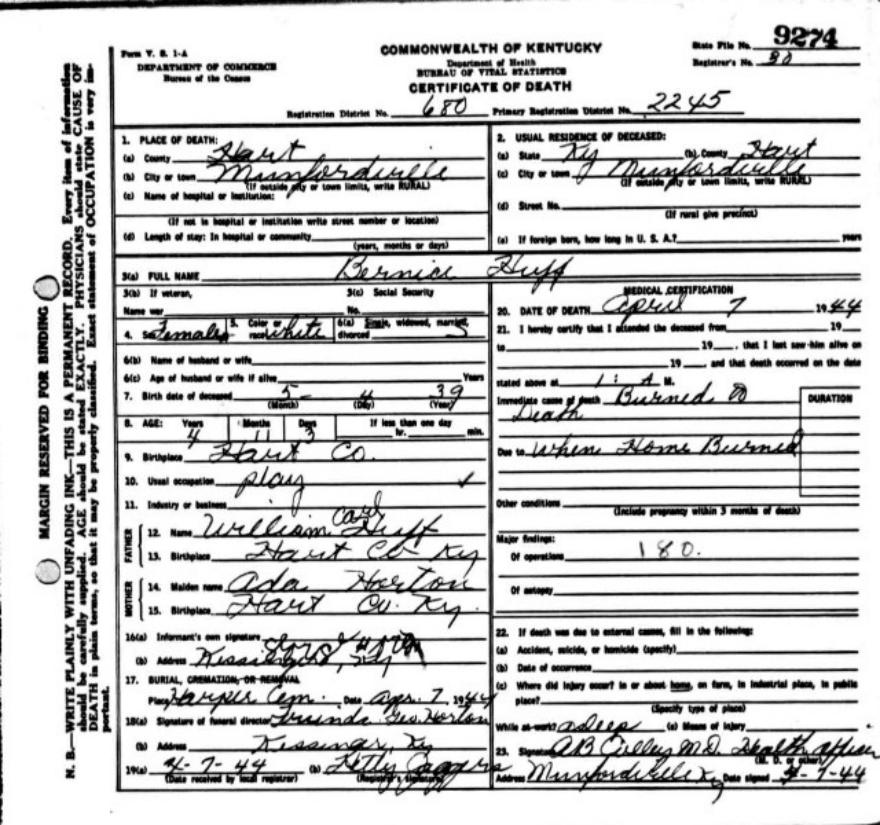 Form V. S. 1-A
DEPARTMENT OF COMMERCE
Bureau of the Census
COMMONWEALTH OF KENTUCKY
Department of Health
BUREAU OF VITAL STATISTICS
CERTIFICATE OF DEATH
State File No. 9274
Registrar's No. 30
Registration District No. 680 Primary Registration District No. 2245
MARGIN RESERVED FOR BINDING
N. B.—WRITE PLAINLY WITH UNFADING INK—THIS IS A PERMANENT RECORD. Every item of information
should be carefully supplied. AGE should be stated EXACTLY. PHYSICIANS should state CAUSE OF
DEATH in plain terms, so that it may be properly classified. Exact statement of OCCUPATION is very im-
portant.
1. PLACE OF DEATH:
(a) County Hart
(b) City or town Munfordville
(If outside city or town limits, write RURAL)
(c) Name of hospital or institution:
(If not in hospital or institution write street number or location)
(d) Length of stay: In hospital or community
(years, months or days)
2. USUAL RESIDENCE OF DECEASED:
(a) State Ky (b) County Hart
(c) City or town Munfordville
(If outside city or town limits, write RURAL)
(d) Street No.
(If rural give precinct)
(e) If foreign born, how long in U. S. A.? years
3(a) FULL NAME Bernice Huff
3(b) If veteran, 3(c) Social Security
Name war No.
4. Sex Female 5. Color or race White 6(a) Single, widowed, married, divorced S
6(b) Name of husband or wife
6(c) Age of husband or wife if alive Years
7. Birth date of deceased 5 4 39
(Month) (Day) (Year)
8. AGE: Years Months Days If less than one day
4 11 3 hr. min.
9. Birthplace Hart Co.
10. Usual occupation play
11. Industry or business
FATHER
12. Name William Carl Huff
13. Birthplace Hart Co Ky
MOTHER
14. Maiden name Ada Horton
15. Birthplace Hart Co. Ky.
16(a) Informant's own signature
(b) Address
17. BURIAL, CREMATION, OR REMOVAL
Place Harper Cem. Date Apr. 7 1944
18(a) Signature of funeral director Geo. Horton
(b) Address Kessinger, Ky
19(a) 4-7-44 (b) Letty Jaggers
(Date received by local registrar) (Registrar's signature)
MEDICAL CERTIFICATION
20. DATE OF DEATH April 7 1944
21. I hereby certify that I attended the deceased from 19
to 19, that I last saw him alive on
19, and that death occurred on the date
stated above at 1: A M.
Immediate cause of death Burned to
Death
DURATION
Due to When Home Burned
Other conditions
(Include pregnancy within 3 months of death)
Major findings:
Of operations 180.
Of autopsy
22. If death was due to external causes, fill in the following:
(a) Accident, suicide, or homicide (specify)
(b) Date of occurrence
(c) Where did injury occur? in or about home, on farm, in industrial place, in public
place?
(Specify type of place)
While at work? asleep (e) Means of injury
23. Signature M.D. Health officer
(M. D. or other)
Address Munfordville Ky Date signed 4-7-44